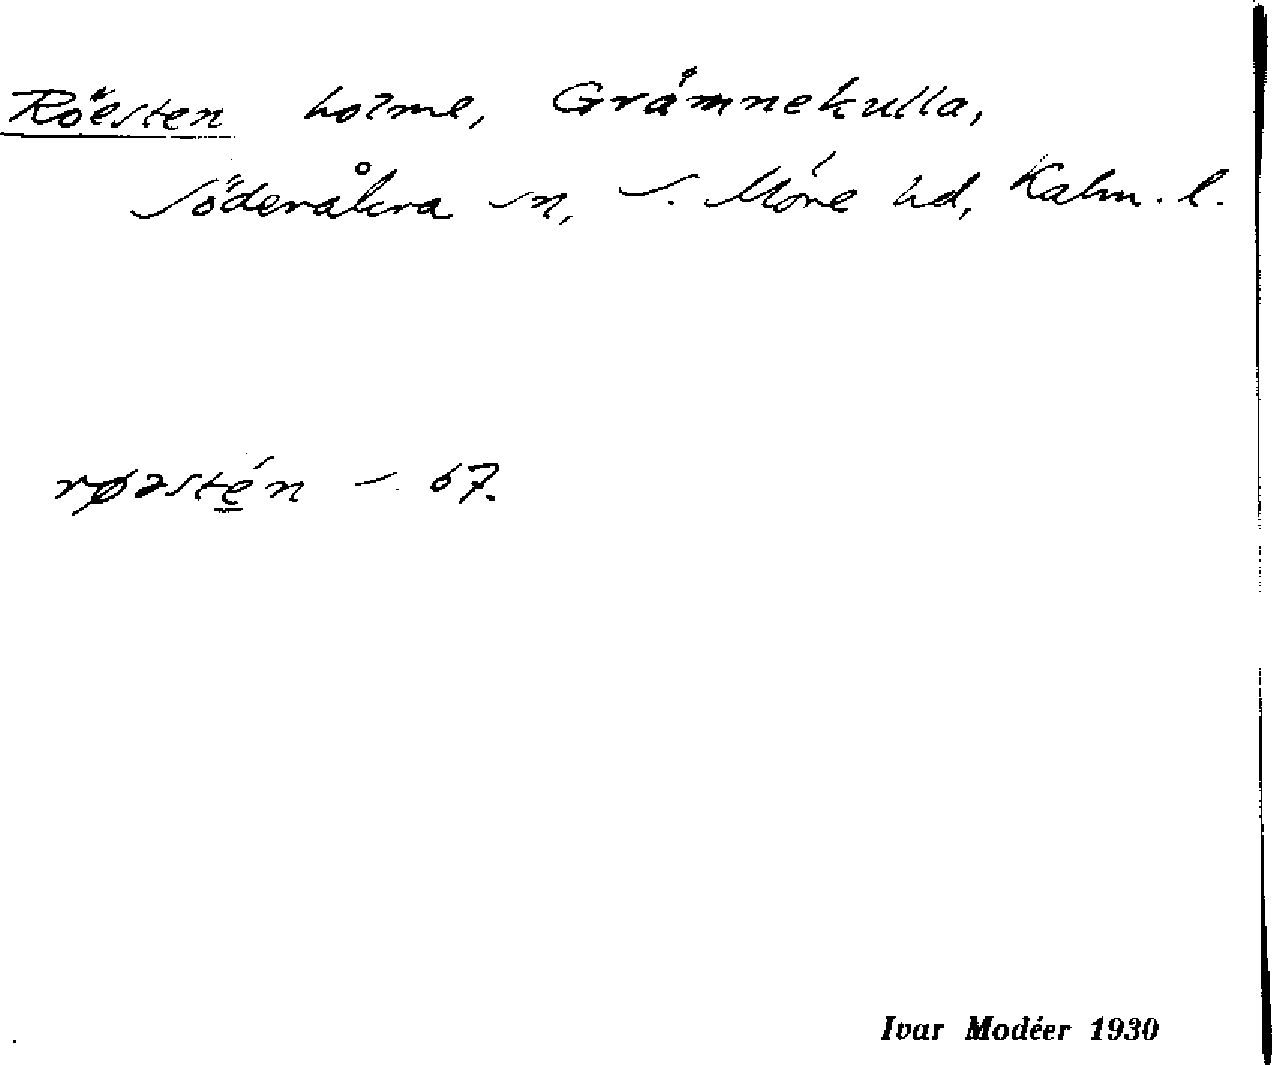 Röesten holme, Gråmnekulla,
Söderåkra sn, S. Möre hd, Kalm. l.
røastén – 67.
Ivar Modéer 1930